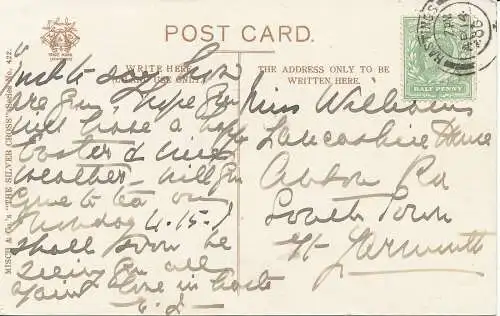 POST CARD.
TRADE MARK
WRITE HERE
THE ADDRESS ONLY TO BE
WRITTEN HERE.
HALF PENNY
HASTINGS
MISCH & Co.'s "THE SILVER CROSS" Series No. 422.
Just to say how
are you, hope you
will have a happy
Easter & nice
weather will you
Give to tea on
Sunday 4.15.
shall soon be
seeing you all
again love in haste
Miss Williams
Lancashire House
Rd
South Town
Gt Yarmouth